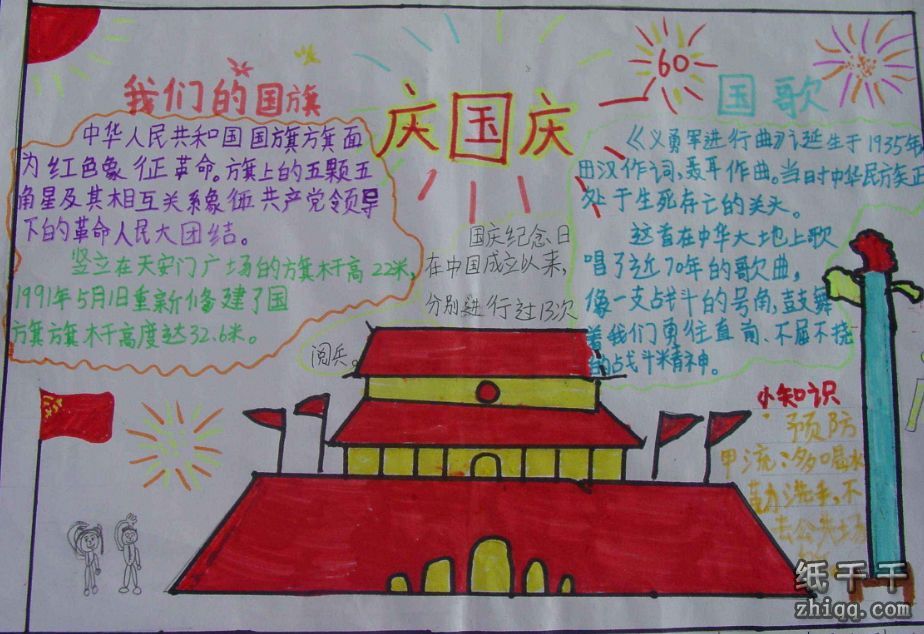 我们的国旗
中华人民共和国国旗旗面
为红色象征革命。旗上的五颗五
角星及其相互关系象征共产党领导
下的革命人民大团结。
竖立在天安门广场的旗杆高22米,
1991年5月1日重新修建了国
旗旗杆高度达32.6米。
庆国庆
60
国庆纪念日
在中国成立以来,
分别进行过13次
阅兵。
国歌
《义勇军进行曲》诞生于1935年
田汉作词,聂耳作曲。当时中华民族正
处于生死存亡的关头。
这首在中华大地上歌
唱了近70年的歌曲,
像一支战斗的号角,鼓舞
着我们勇往直前、不屈不挠
的战斗精神。
小知识
预防
甲流:多喝水
勤洗手,不
去公共场
纸千千
zhiqq.com